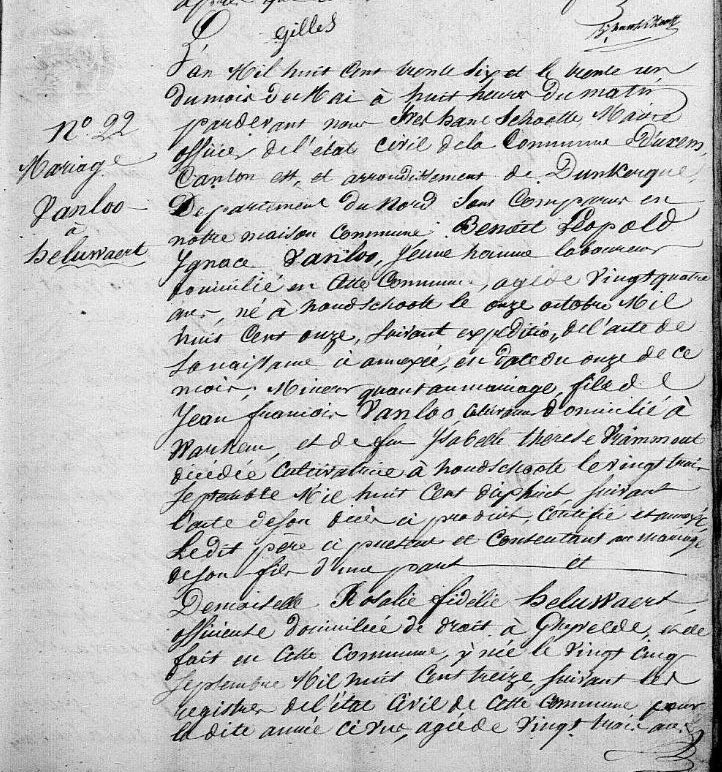 gilles
N.º 22
Mariage
Vanloo
à
heluwaert
L'an Mil huit Cent trente Six et le trente un
du mois de Mai à huit heures du matin
pardevant nous Maire
officier de l'état Civil de la Commune d'uxem,
Canton est, et arrondissement de Dunkerque,
Département du Nord Sont Comparus en
notre maison Commune Benoît Léopold
Ignace Vanloo, Jeune homme laboureur
domicilié en Cette Commune, agé de Vingt quatre
ans, né à hondschoote le onze octobre Mil
huit Cent onze, Suivant expédition de l'acte de
Sa naissance ci annexée, en date du onze de ce
mois, Mineur quant au mariage, fils de
Jean francois Vanloo Cultivateur domicilié à
Warhem, et de feu Isabelle therese
décédée Cultivatrice à hondschoote le vingt trois
Septembre Mil huit Cent dixhuit, Suivant
l'acte de son décès ci produit, Certifié et annexé
Ledit père ci présent et Consentant au mariage
de son fils d'une part et
Demoiselle Rosalie fidélie heluwaert
domiciliée de droit à Ghyvelde, et de
fait en Cette Commune, y née le Vingt Cinq
Septembre Mil huit Cent treize, Suivant les
registres de l'état Civil de Cette Commune pour
la dite année ci vue, agée de Vingt trois ans